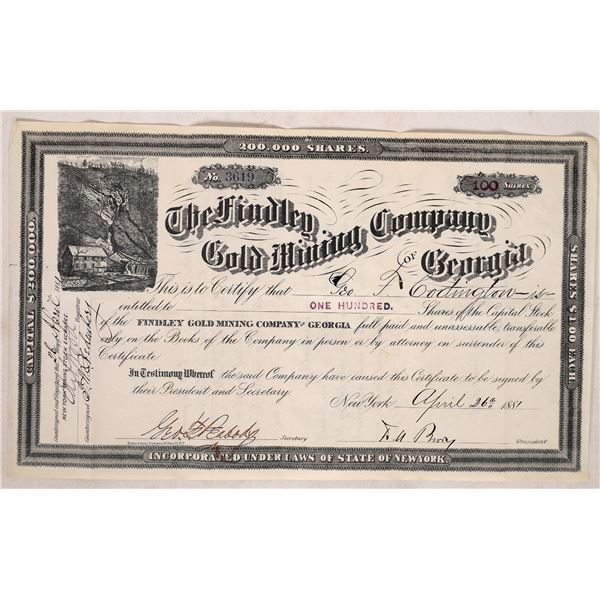 200,000 SHARES.
No. 3619
100 SHARES.
The Findley Company
Gold Mining OF Georgia
This is to Certify that Geo F. Codington is
entitled to ONE HUNDRED. Shares of the Capital Stock
of the FINDLEY GOLD MINING COMPANY OF GEORGIA full paid and unassessable, transferable
only on the Books of the Company in person or by attorney on surrender of this
Certificate.
In Testimony Whereof the said Company have caused this Certificate to be signed by
their President and Secretary.
New York April 26th 1881
Geo. H. Peabody Secretary
President
INCORPORATED UNDER LAWS OF STATE OF NEW YORK.
CAPITAL $200,000.
SHARES $1.00 EACH.
Countersigned and Registered this 26 April 1881
NEW YORK MINING STOCK EXCHANGE
Registrar
Countersigned